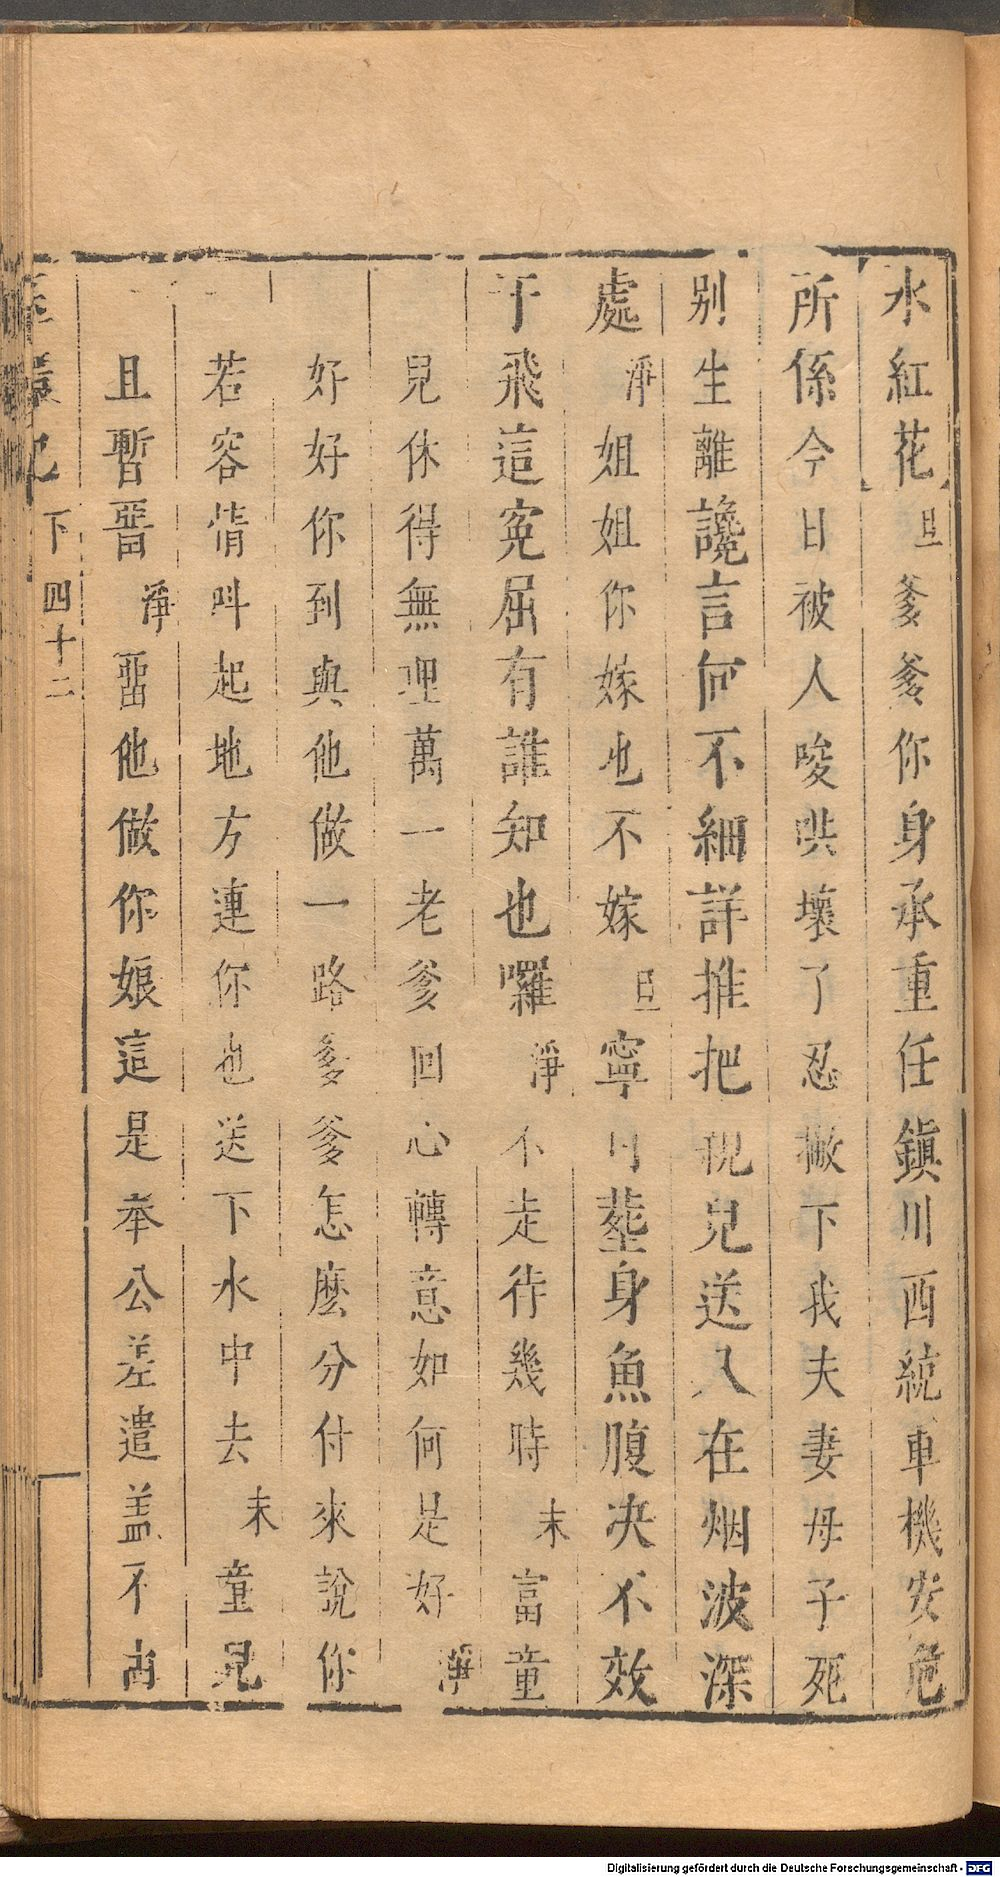 水紅花旦爹爹你身承重任鎮川西統車機安危
所係今日被人唆哄壞了忍撇下我夫妻母子死
別生離讒言何不細詳推把親兒送入在烟波深
處淨姐姐你嫁也不嫁旦寧可塟身魚腹决不效
于飛這寃屈有誰知也囉淨不走待幾時末富童
兒休得無理萬一老爹回心轉意如何是好淨
好好你到與他做一路爹爹怎麽分付來說你
若容情呌起地方連你也送下水中去末童兒
且暫畱淨畱他做你娘這是奉公差遣盖不由
記下四十二
Digitalisierung gefördert durch die Deutsche Forschungsgemeinschaft - DFG